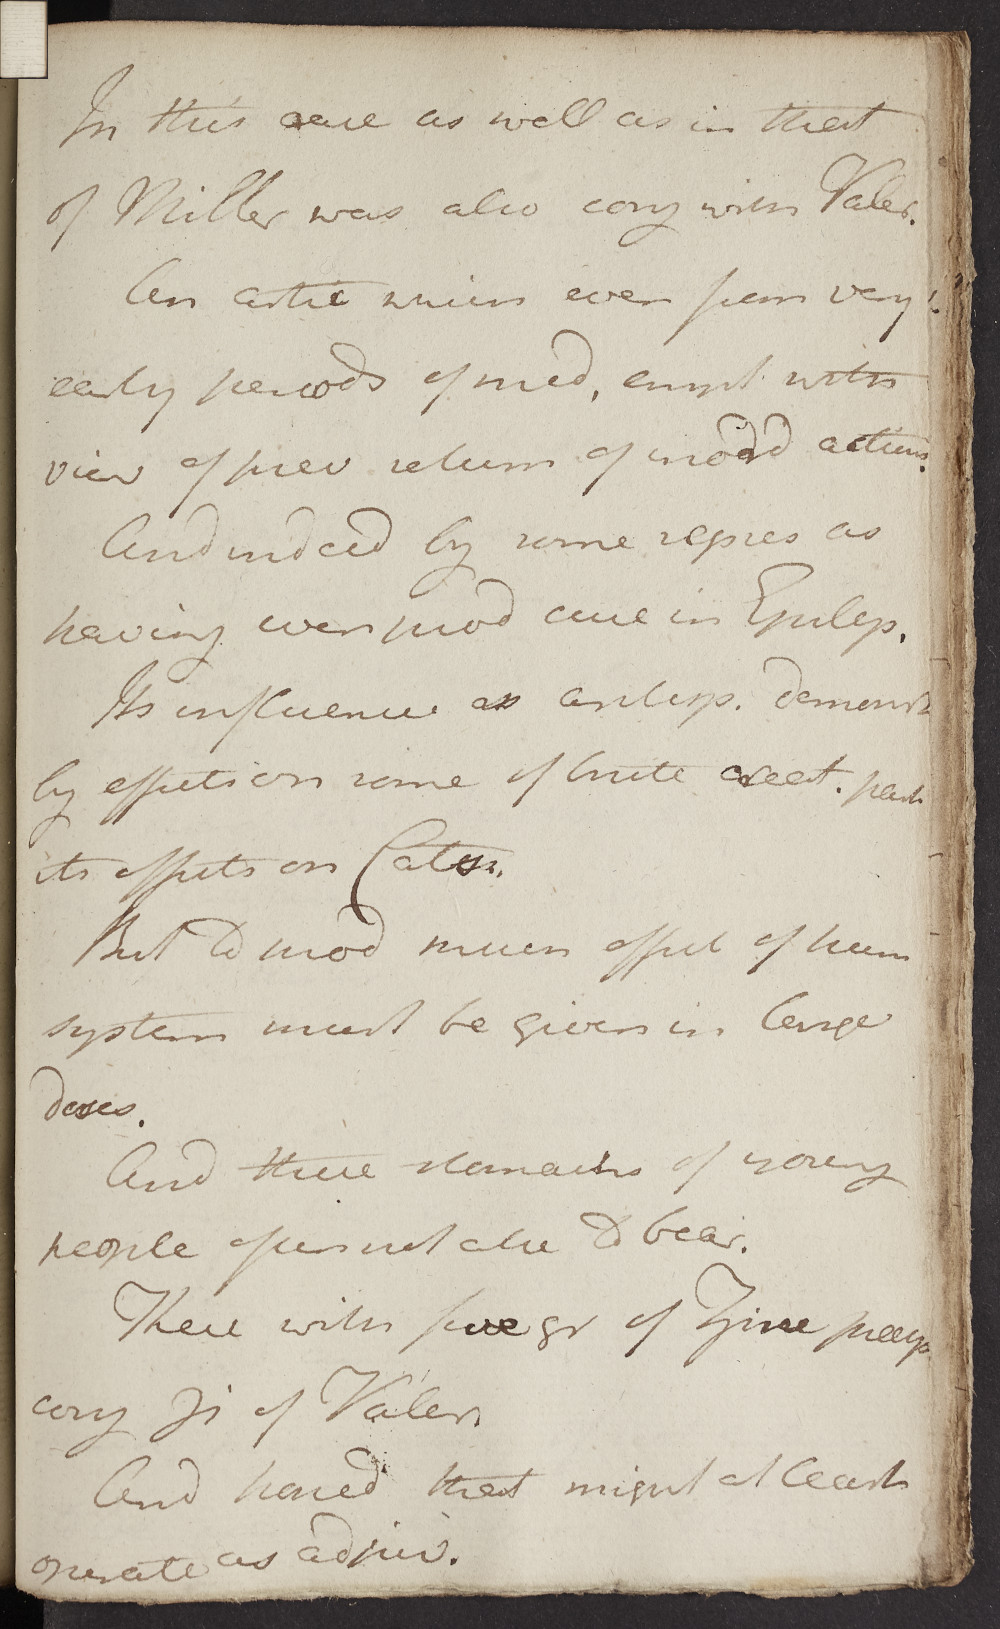 In this case as well as in that
of Miller was also conj with Valer.
An artic which even from very
early periods of med, empl with
view of prev return of morbd actions.
And indeed by some repres as
having even prod cure in Epilep.
Its influence as antisp. demonst
by effects on some of brute creat. part
its effects on Cats.
But to prod much effect of hum
system must be given in large
doses.
And these stomachs of young
people often not able to bear.
Here with five gr of Zinc precip
conj ʒi of Valer.
And hoped that might at least
operate as adjuv.